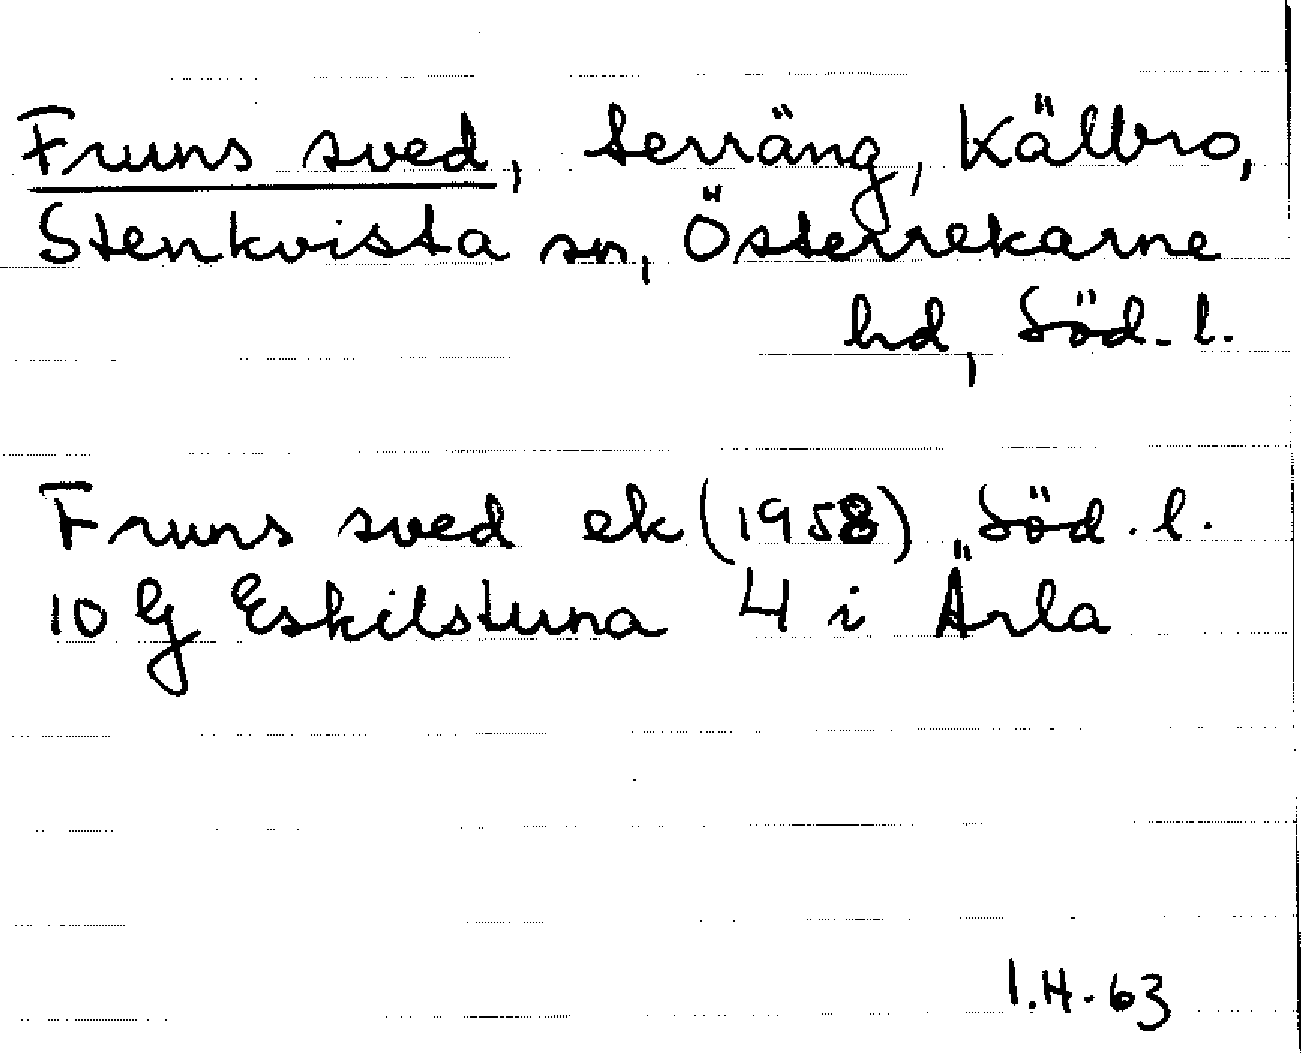 Fruns sved, terräng, Kälbro,
Stenkvista sn, Österrekarne
hd, Söd. l.
Fruns sved ek (1958) Söd. l.
10 G Eskilstuna 4 i Ärla
I.H. 63